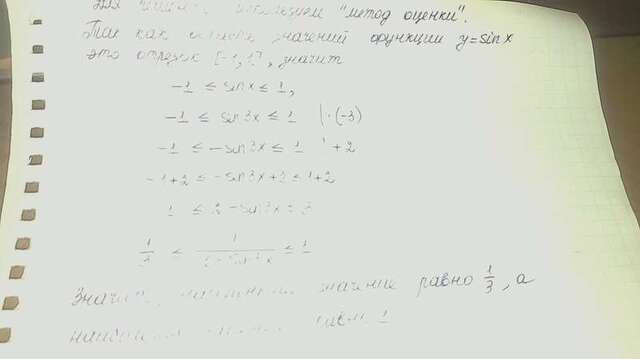 "метод оценки".
Так как область значений функции y=sinx
это отрезок [-1,1], значит
-1 ≤ sinx ≤ 1,
-1 ≤ sin3x ≤ 1 |·(-3)
-1 ≤ -sin3x ≤ 1 +2
-1+2 ≤ -sin3x+2 ≤ 1+2
1 ≤ 2-sin3x ≤ 3
1/3 ≤ 1/(2-sin3x) ≤ 1
значение равно 1/3, а
1